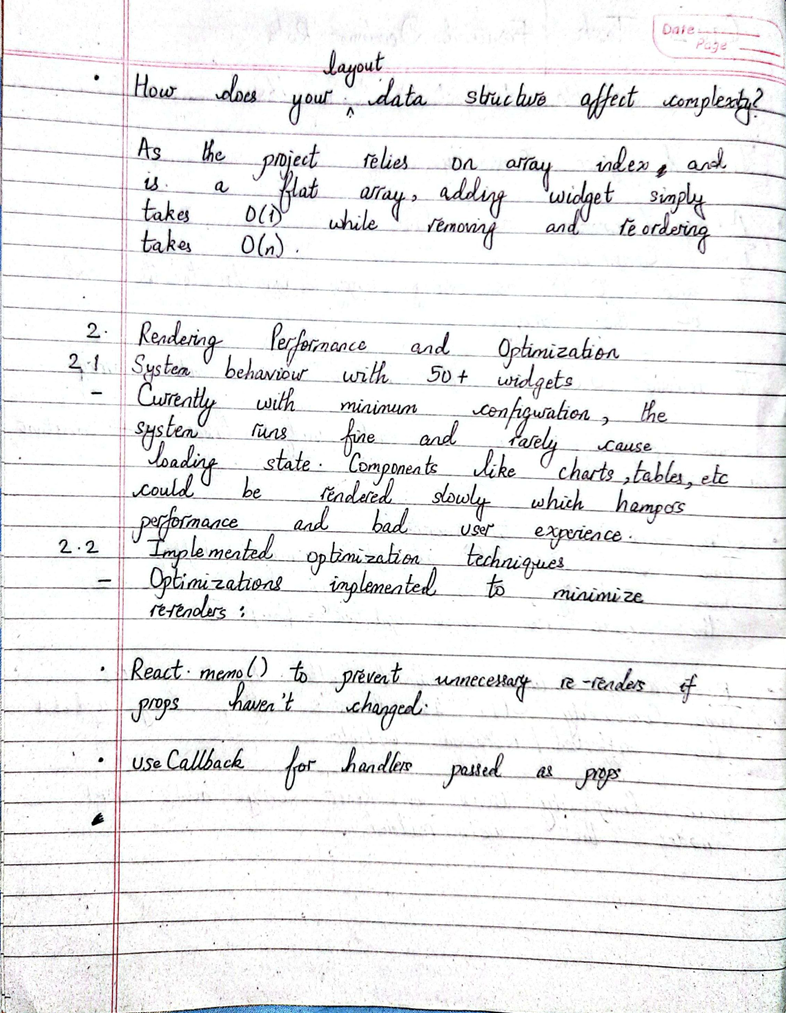 Date
Page
layout
• How does your ^ data structure affect complexity?
As the project relies on array index, and
is a flat array, adding widget simply
takes O(1) while removing and reordering
takes O(n).
2. Rendering Performance and Optimization
2.1 System behaviour with 50+ widgets
- Currently with mininum configuration, the
system runs fine and rarely cause
loading state. Components like charts, tables, etc
could be rendered slowly which hampers
performance and bad user experience.
2.2 Implemented optimization techniques
- Optimizations implemented to minimize
rerenders:
• React.memo() to prevent unnecessary re-renders if
props haven't changed.
• useCallback for handlers passed as props